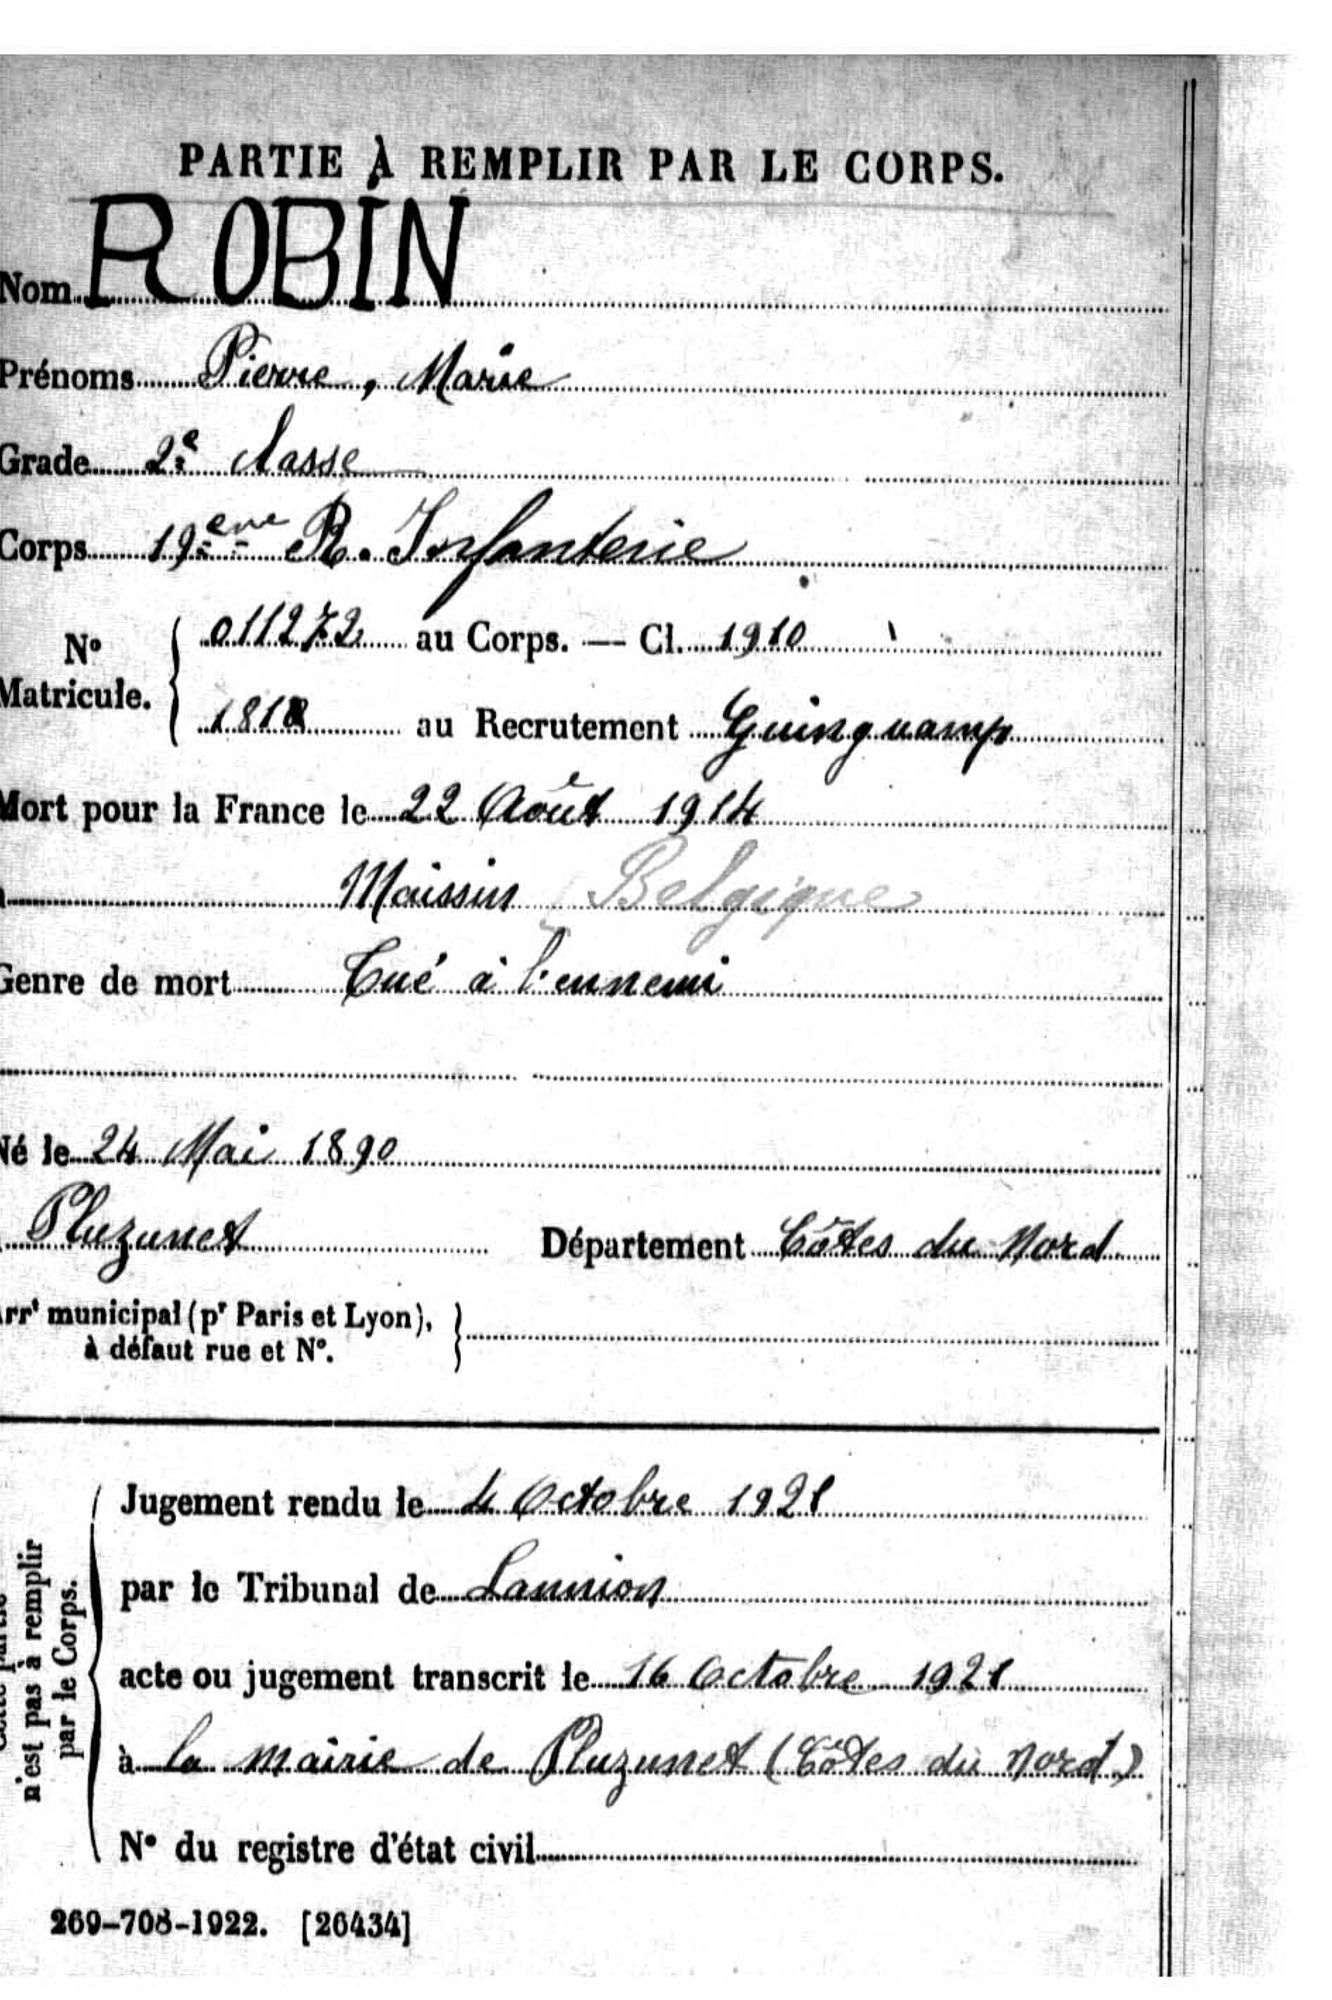 PARTIE À REMPLIR PAR LE CORPS.
Nom ROBIN
Prénoms Pierre, Marie
Grade 2e classe
Corps 19ème R. Infanterie
No Matricule. { 011272 au Corps. — Cl. 1910
1818 au Recrutement Guingamp
Mort pour la France le 22 Août 1914
Maissin Belgique
Genre de mort Tué à l'ennemi
Né le 24 Mai 1890
Pluzunet Département Côtes du Nord
arrt municipal (pr Paris et Lyon), à défaut rue et No. }
n'est pas à remplir par le Corps.
Jugement rendu le 4 Octobre 1921
par le Tribunal de Lannion
acte ou jugement transcrit le 16 Octobre 1921
à la mairie de Pluzunet (Côtes du Nord)
No du registre d'état civil
269-708-1922. [26434]